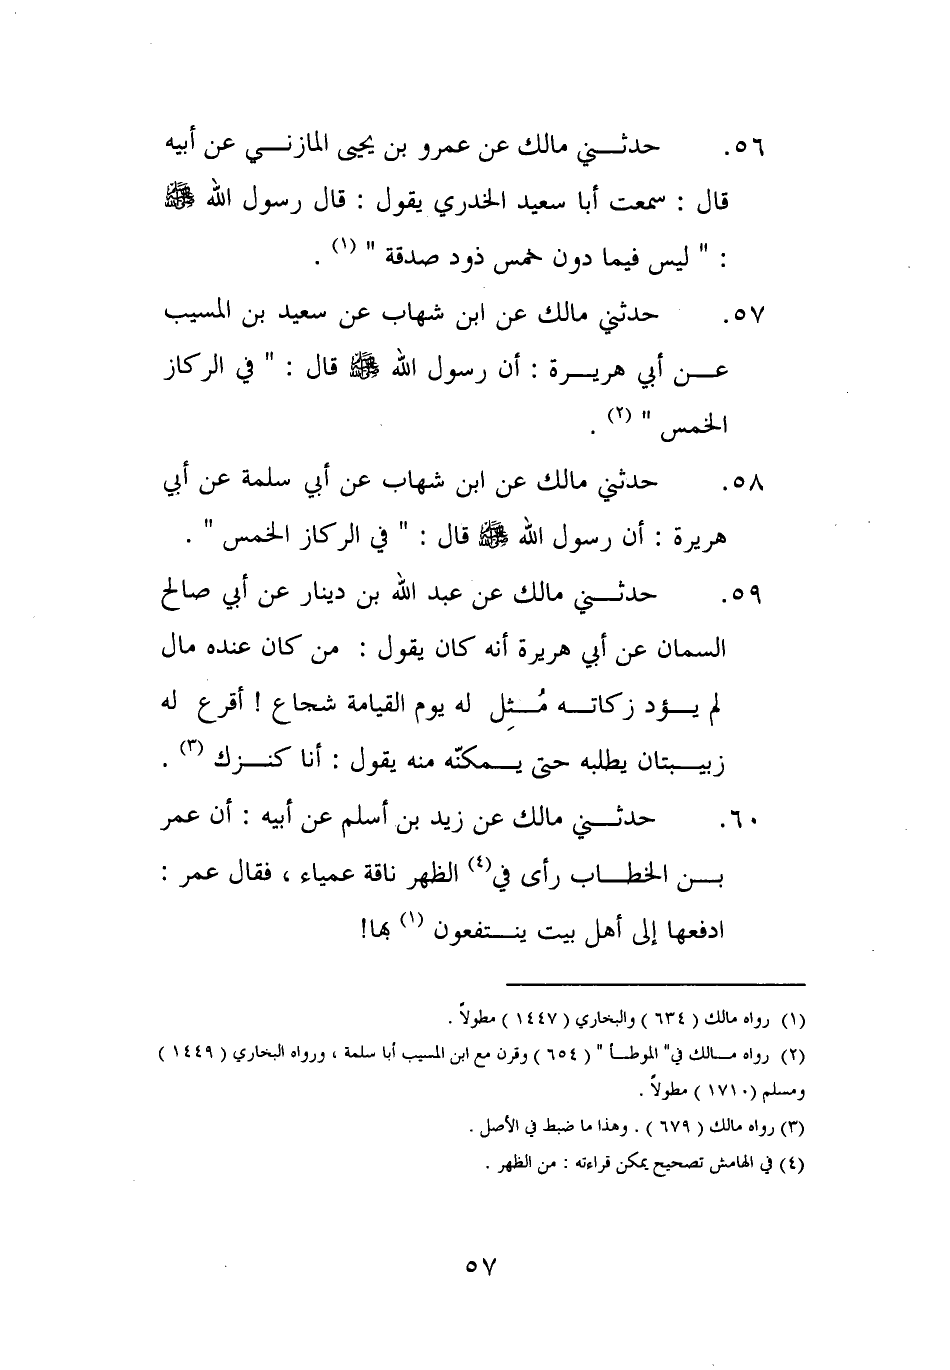 ٥٦. حدثـــني مالك عن عمرو بن يحيى المازنـــي عن أبيه
قال : سمعت أبا سعيد الخدري يقول : قال رسول الله ﷺ
: " ليس فيما دون خمس ذود صدقة " (١) .
٥٧. حدثني مالك عن ابن شهاب عن سعيد بن المسيب
عـــن أبي هريـــرة : أن رسول الله ﷺ قال : " في الركاز
الخمس " (٢) .
٥٨. حدثني مالك عن ابن شهاب عن أبي سلمة عن أبي
هريرة : أن رسول الله ﷺ قال : " في الركاز الخمس " .
٥٩. حدثـــني مالك عن عبد الله بن دينار عن أبي صالح
السمان عن أبي هريرة أنه كان يقول : من كان عنده مال
لم يـــؤد زكاتـــه مُـــثِل له يوم القيامة شجاع ! أقرع له
زبيـــبتان يطلبه حتى يـــمكنّه منه يقول : أنا كنـــزك (٣) .
٦٠. حدثـــني مالك عن زيد بن أسلم عن أبيه : أن عمر
بـــن الخطـــاب رأى في(٤) الظهر ناقة عمياء ، فقال عمر :
ادفعها إلى أهل بيت ينـــتفعون (١) بها!
(١) رواه مالك ( ٦٣٤ ) والبخاري ( ١٤٤٧ ) مطولاً .
(٢) رواه مـــالك في" الموطـــأ " ( ٦٥٤ ) وقرن مع ابن المسيب أبا سلمة ، ورواه البخاري ( ١٤٤٩ )
ومسلم (١٧١٠ ) مطولاً .
(٣) رواه مالك ( ٦٧٩ ) . وهذا ما ضبط في الأصل .
(٤) في الهامش تصحيح يمكن قراءته : من الظهر .
٥٧